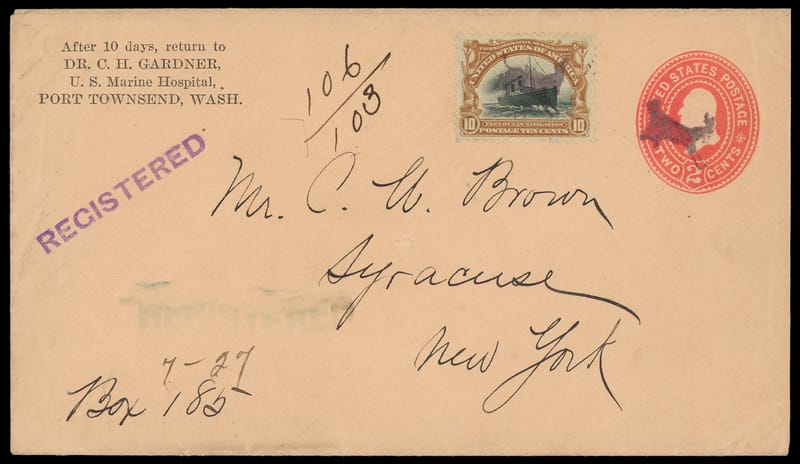 After 10 days, return to
DR. C. H. GARDNER,
U. S. Marine Hospital,
PORT TOWNSEND, WASH.
106
103
COMMEMORATIVE SERIES, 1901
UNITED STATES OF AMERICA
FAST OCEAN NAVIGATION
10 POSTAGE TEN CENTS 10
UNITED STATES POSTAGE
TWO 2 CENTS
REGISTERED
Mr. C. W. Brown
Syracuse
New York
REGISTERED
7-27
Box 185